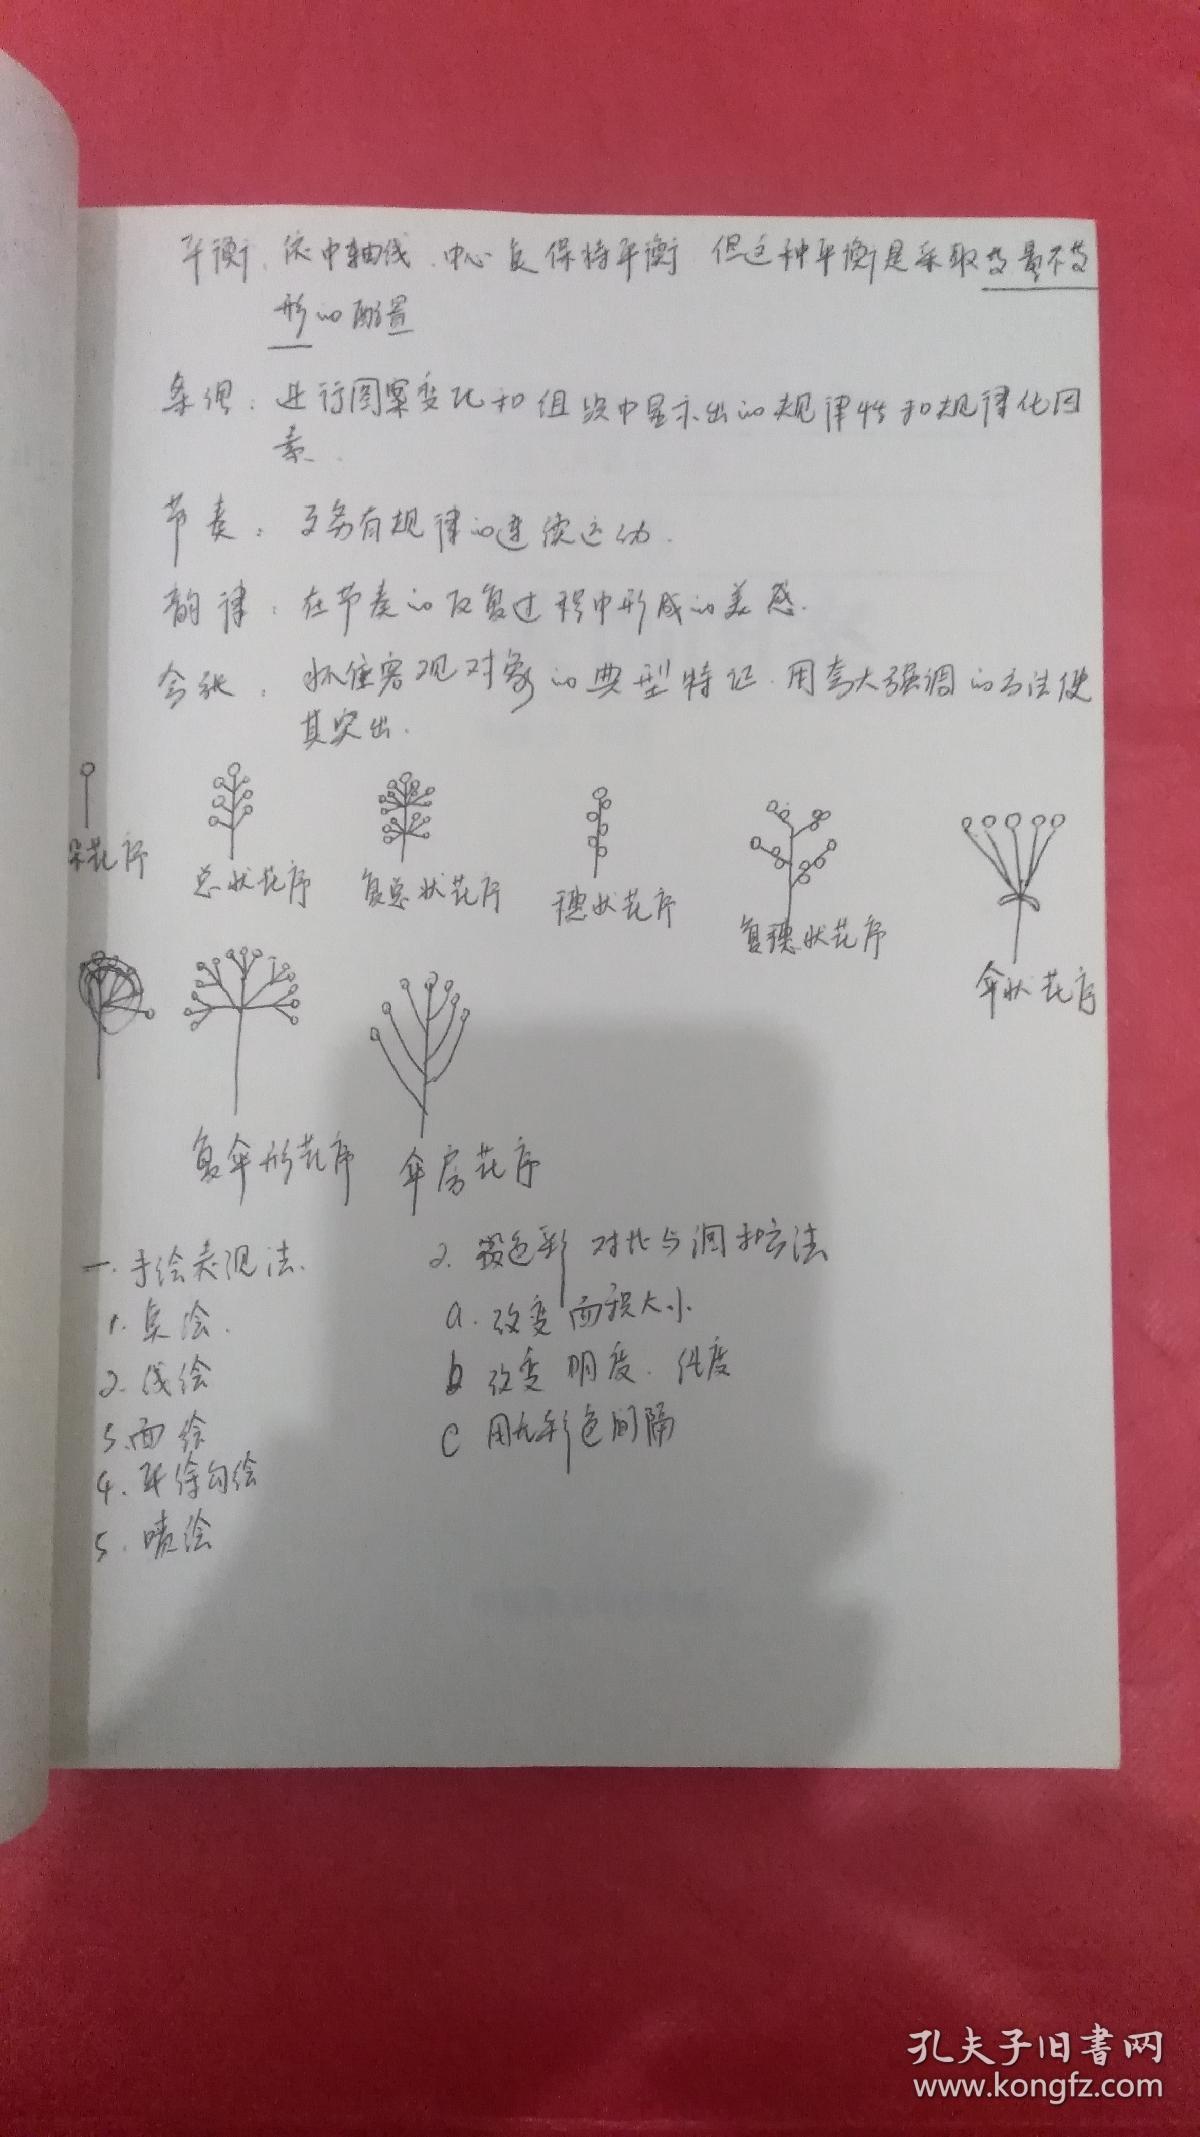 平衡、依中轴线、中心点保持平衡 但这种平衡是采取等量不等
形的配置
条理：进行图案变化和组织中显示出的规律性和规律化因
素.
节奏：有规律的连续运动.
韵律：在节奏的反复过程中形成的美感.
夸张：抓住客观对象的典型特征.用夸大强调的方法使
其突出.
单花序 总状花序 复总状花序 穗状花序 复穗状花序 伞状花序
复伞形花序 伞房花序
一.手绘表现法.
1.点绘.
2.线绘
3.面绘
4.平涂勾绘
5.喷绘
2. 色彩对比与调和方法
a.改变面积大小
b 改变明度.纯度
c 用无彩色间隔
孔夫子旧书网
www.kongfz.com